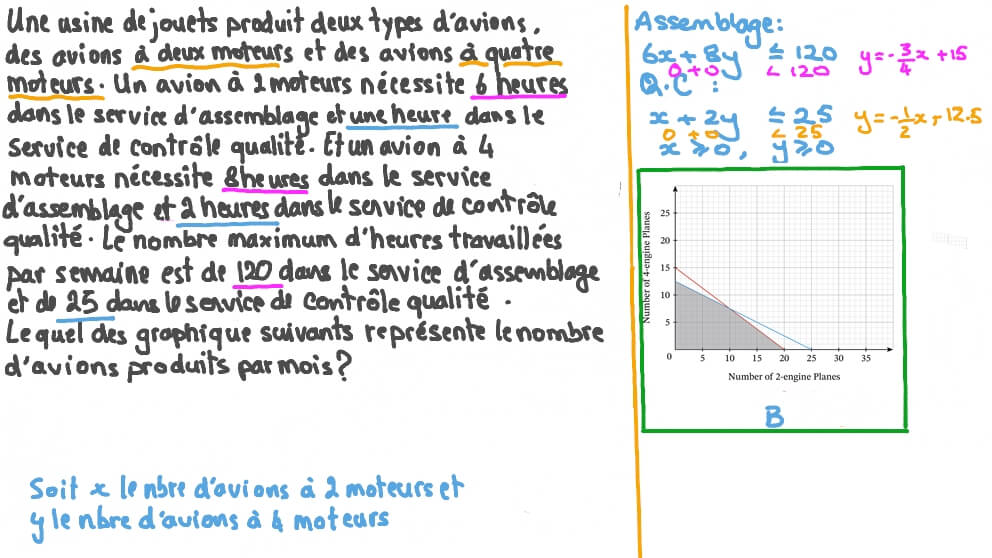 Une usine de jouets produit deux types d'avions,
des avions à deux moteurs et des avions à quatre
moteurs. Un avion à 2 moteurs nécessite 6 heures
dans le service d'assemblage et une heure dans le
service de contrôle qualité. Et un avion à 4
moteurs nécessite 8 heures dans le service
d'assemblage et 2 heures dans le service de contrôle
qualité. Le nombre maximum d'heures travaillées
par semaine est de 120 dans le service d'assemblage
et de 25 dans le service de contrôle qualité.
Lequel des graphique suivants représente le nombre
d'avions produits par mois?
Soit x le nbre d'avions à 2 moteurs et
y le nbre d'avions à 4 moteurs
Assemblage:
6x + 8y ≤ 120 y = -3/4 x + 15
0 + 0 < 120
Q.C :
x + 2y ≤ 25 y = -1/2 x + 12.5
0 + 0 < 25
x ≥ 0, y ≥ 0
Number of 4-engine Planes
25
20
15
10
5
0 5 10 15 20 25 30 35
Number of 2-engine Planes
B